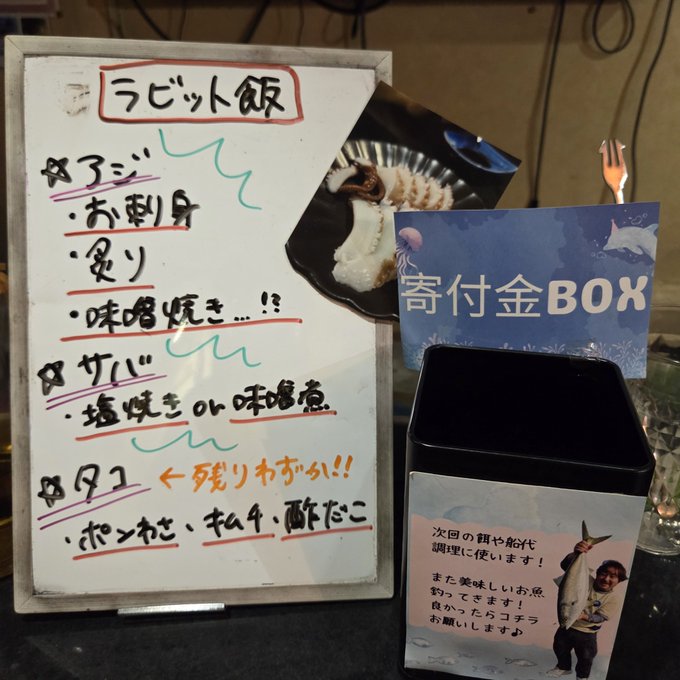 ラビット飯
☆アジ
・お刺身
・炙り
・味噌焼き…!?
☆サバ
・塩焼き or 味噌煮
☆タコ ←残りわずか!!
・ポンわさ、キムチ、酢だこ
寄付金BOX
次回の餌や船代
調理に使います！
また美味しいお魚
釣ってきます！
良かったらコチラ
お願いします♪